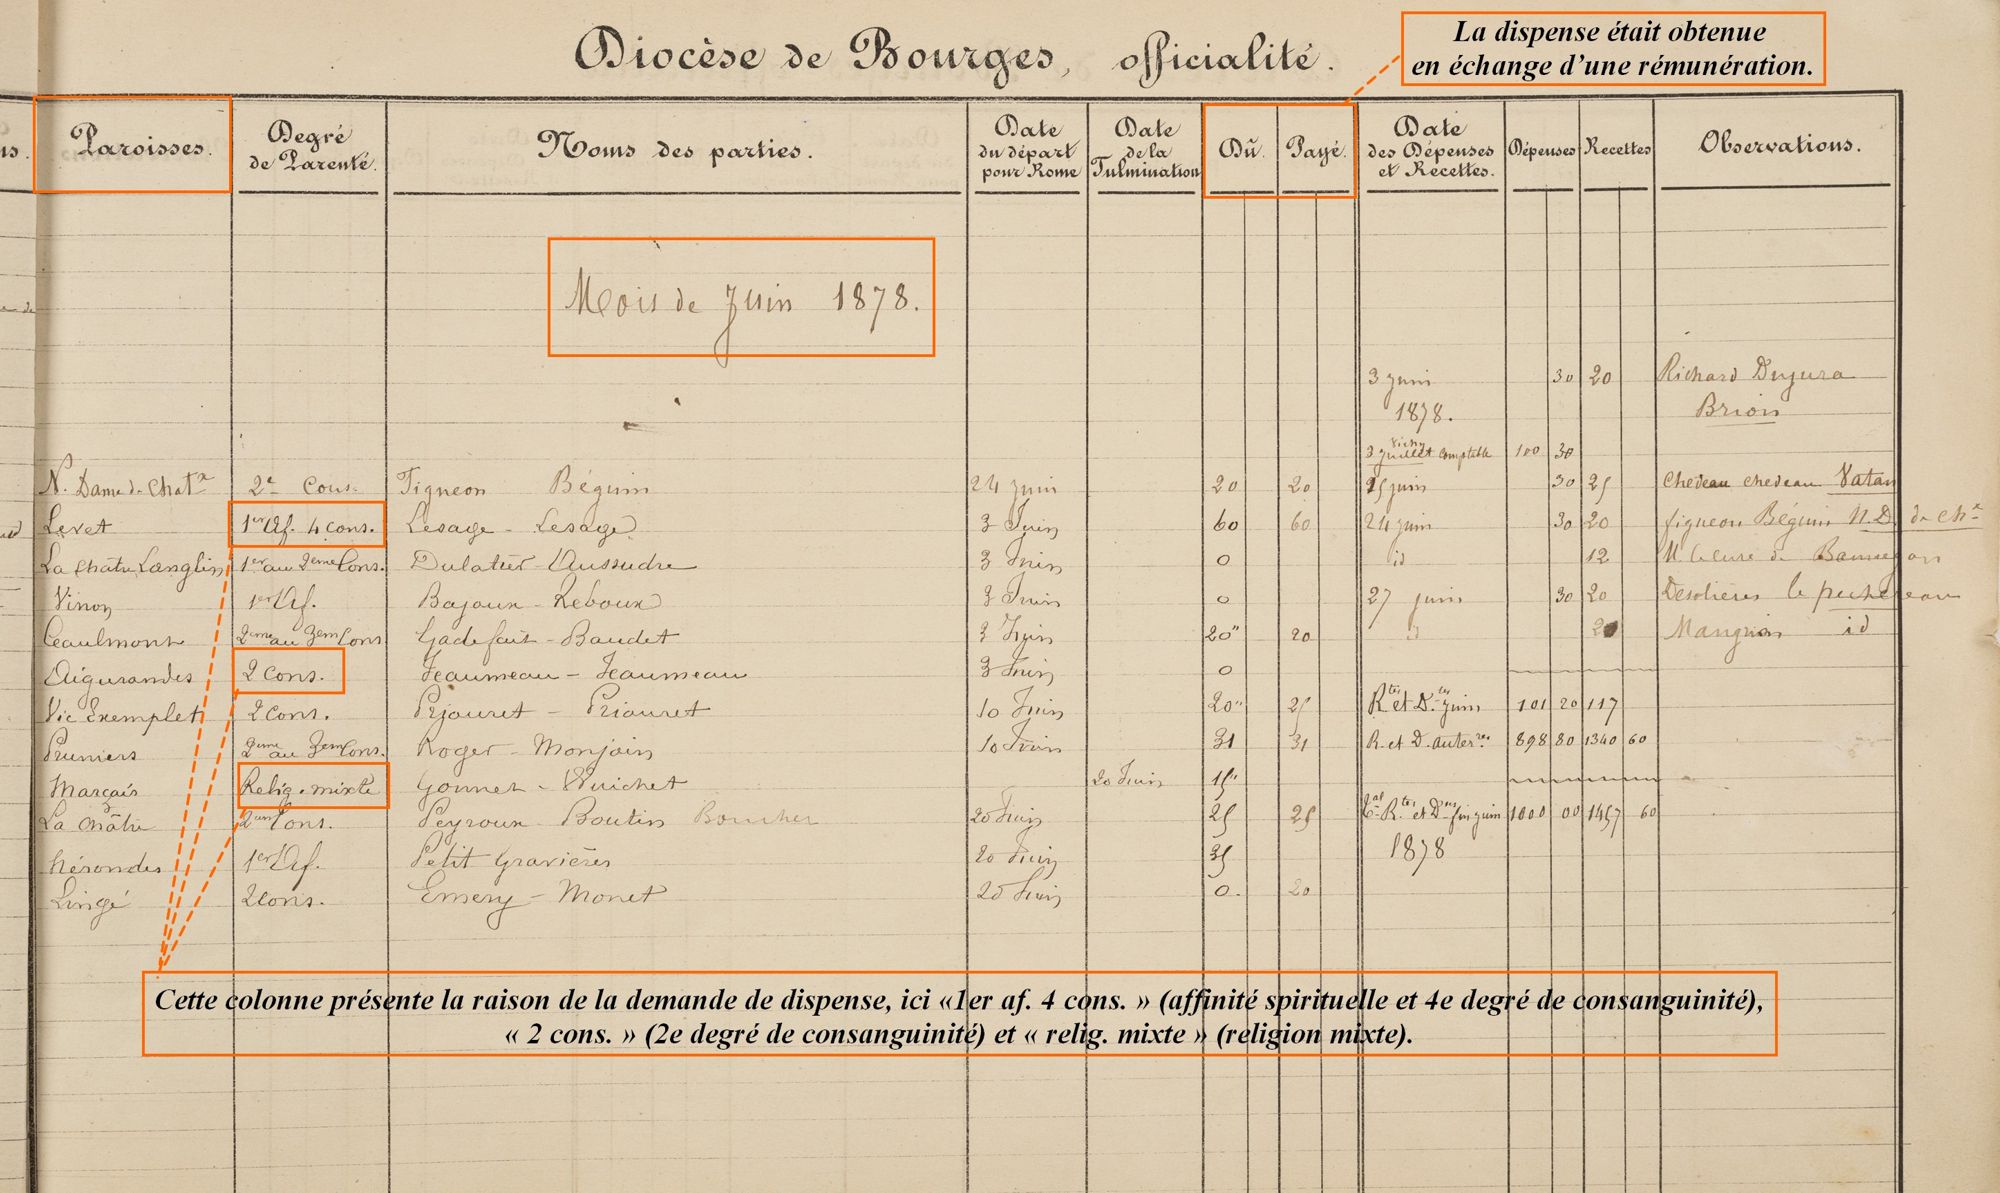 Diocèse de Bourges, officialité.
La dispense était obtenue
en échange d'une rémunération.
Paroisses. Degré de Parenté. Noms des parties. Date du départ pour Rome Date de la Fulmination Dû. Payé. Date des Dépenses et Recettes. Dépenses Recettes Observations.
Mois de Juin 1878.
3 juin 30 20 Richard
1878. Brion
3 juillet comptable 100 30
N. Dame de Chat.x 2e Cons. Figneon Béguin 24 juin 20 20 25 juin 30 25 Chedeau chedeau Vatan
Levet 1er Af. 4 cons. Lesage - Lesage 3 Juin 60 60 24 juin 30 20 figneon Béguin N.D. de Ch.x
La Chatre Langlin 1er au 2eme Cons. Dulatier - Aussudre 3 Juin 0 id 12
Vinon 1er Af. Bajoux - Reboux 3 Juin 0 27 juin 30 20 Desolières le pechereau
Ceaulmont 2eme au 3em Cons. Gadefait - Baudet 3 Juin 20" 20 id
Aigurandes 2 Cons. Jeaumeau - Jeaumeau 3 Juin 0
Vic Exemplet 2 Cons. Prjouret - Priouret 10 Juin 20" 25 Rtes et D.tes juin 101 20 117
Pruniers 2eme au 3em Cons. Roger - Monjoin 10 Juin 31 31 R. et D. anter.res 898 80 1340 60
Marçais Relig. mixte Gonnet - Wuichet 20 Juin 15"
La Châtre 2em Cons. Peyroux - Boutin Boucher 20 Juin 25 25 R.tes et D. fin juin 1000 00 1457 60
Nérondes 1er Af. Petit Gravières 20 Juin 35 1878
Lingé 2 Cons. Emery - Monet 20 Juin 0. 20
Cette colonne présente la raison de la demande de dispense, ici «1er af. 4 cons. » (affinité spirituelle et 4e degré de consanguinité),
« 2 cons. » (2e degré de consanguinité) et « relig. mixte » (religion mixte).